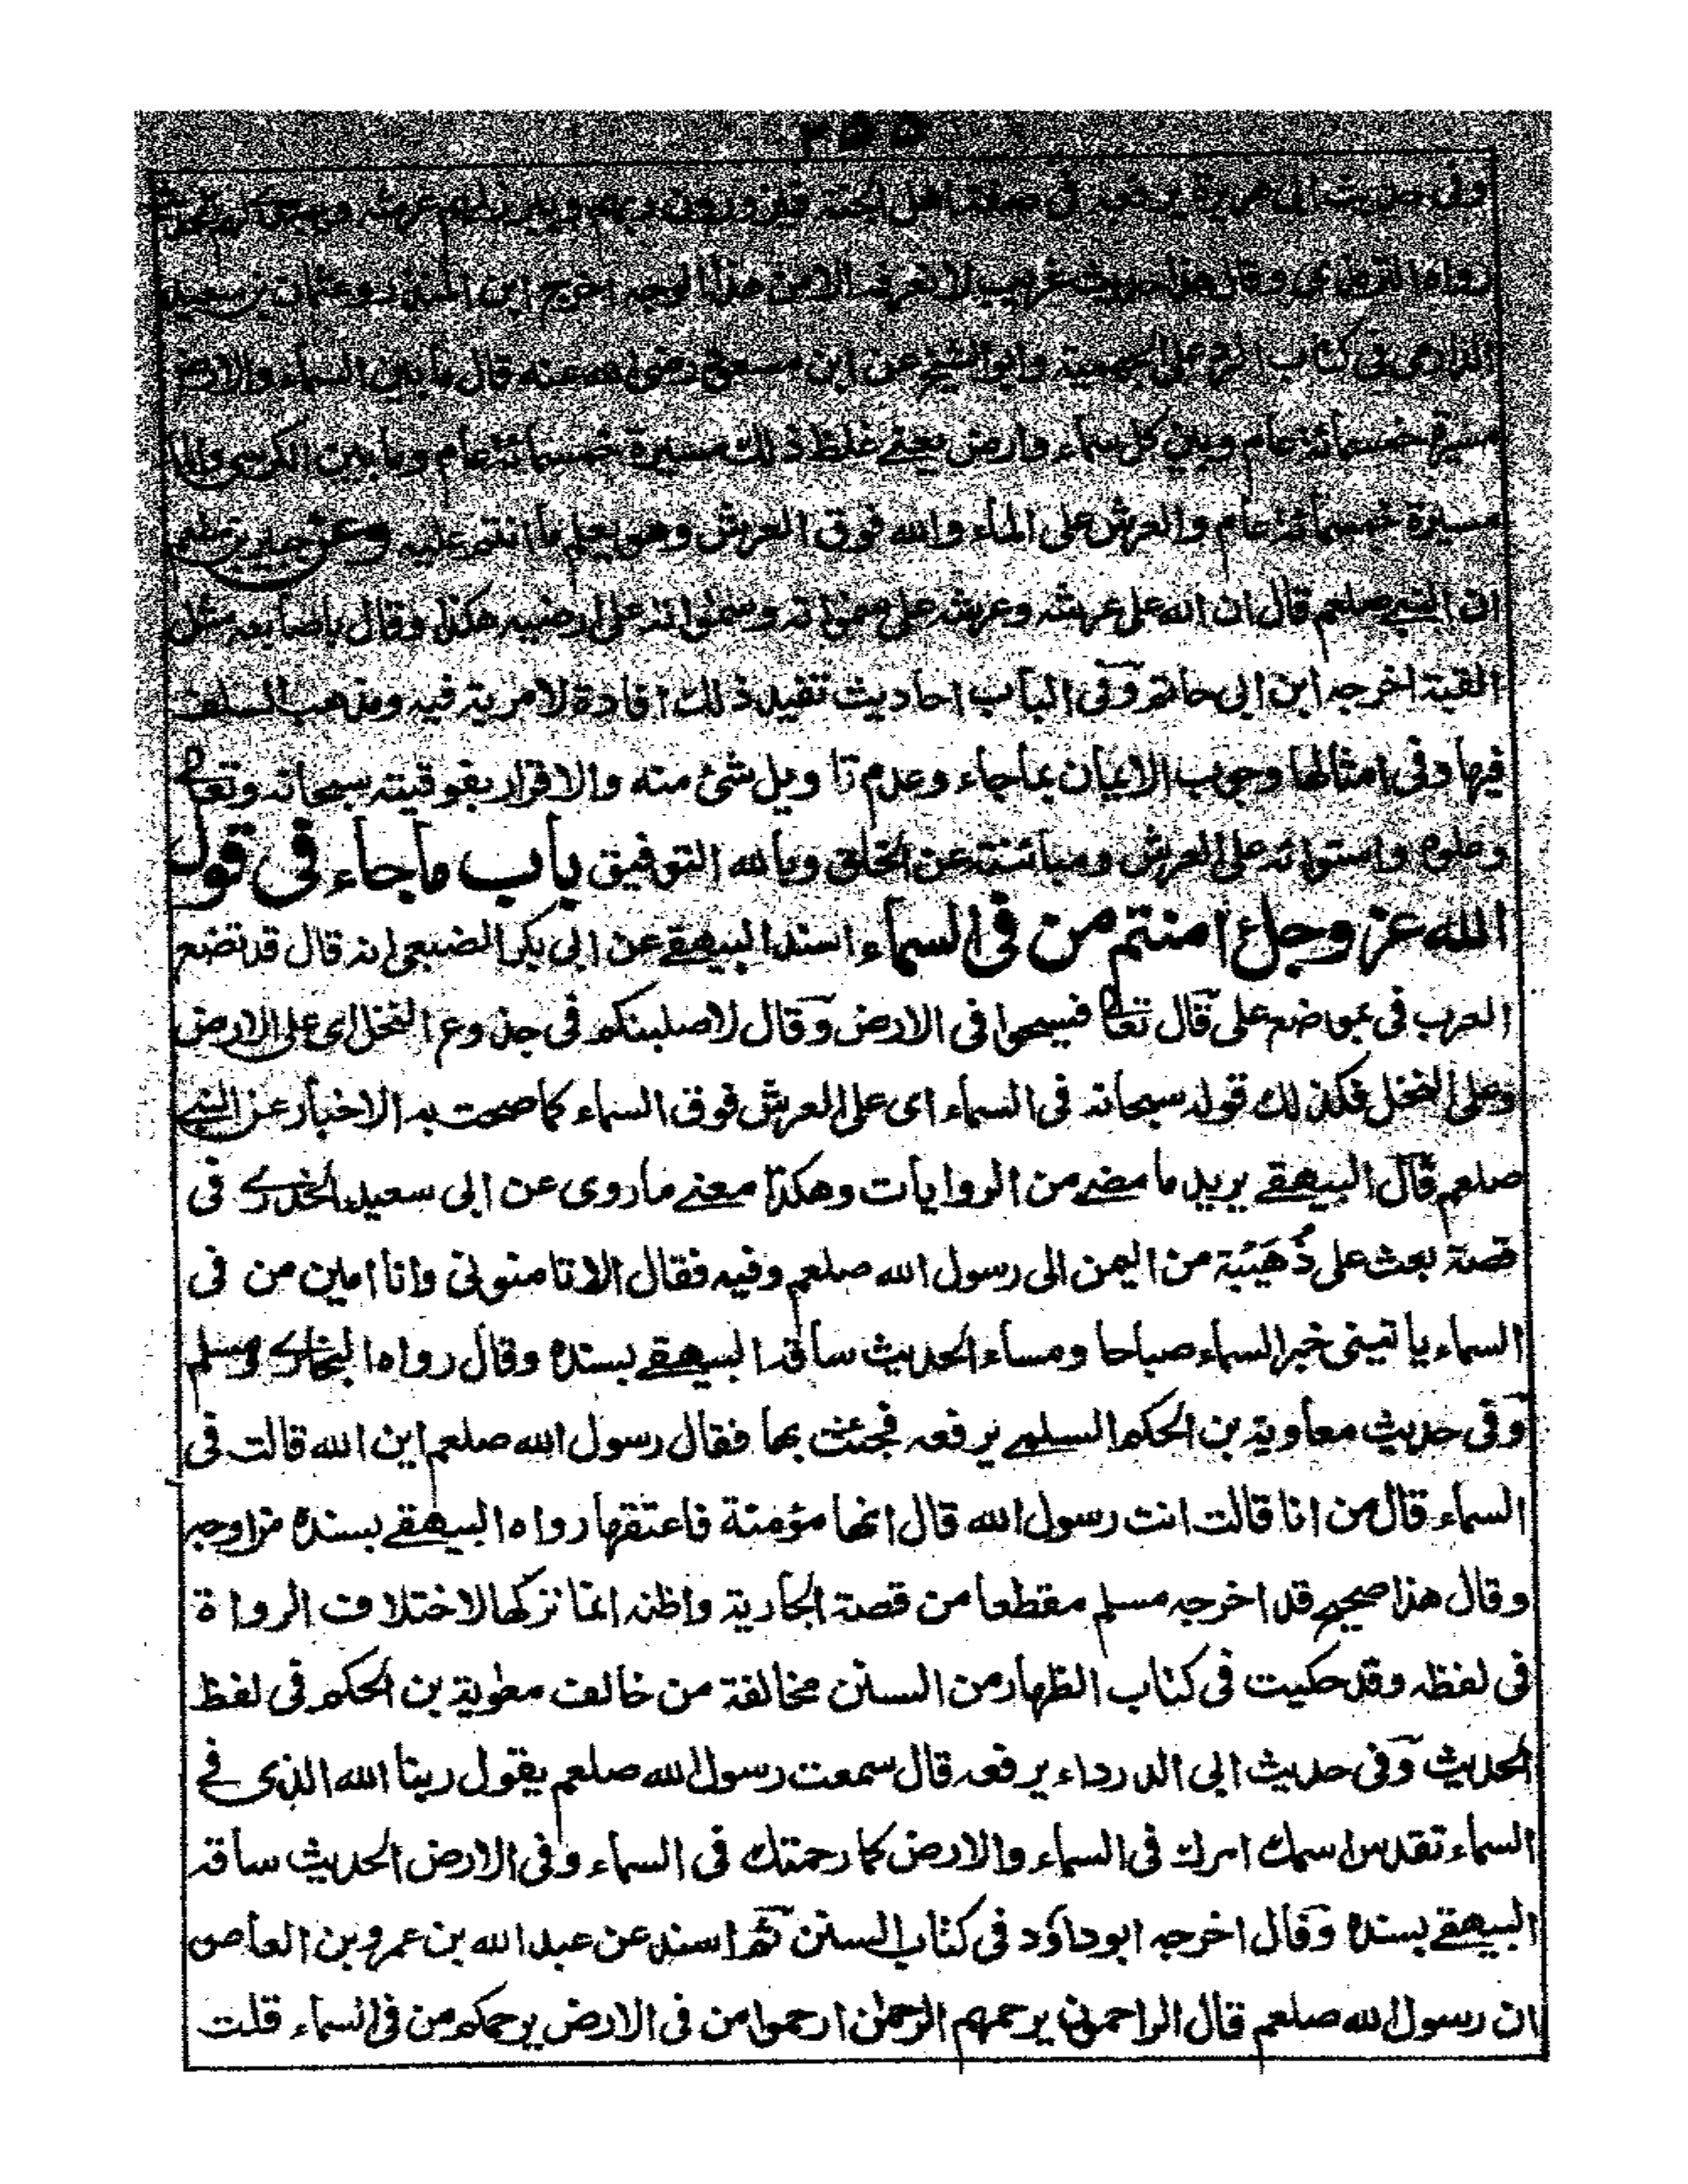 وفى حديث ابى هريرة يرفعه فى صفة اهل الجنة فيزورون ربهم ويبرز لهم عرشه
رواه الترمذى وقال هذا حديث غريب لا نعرفه الا من هذا الوجه اخرج ابن المنذر وعثمان بن سعيد
الدارمى فى كتاب الرد على الجهمية وابو الشيخ عن ابن مسعود رضى الله عنه قال ما بين السماء والارض
مسيرة خمسمائة عام وبين كل سماء وارض يعنے غلظ ذلك مسيرة خمسمائة عام وما بين الكرسى والماء
مسيرة خمسمائة عام والعرش على الماء والله فوق العرش وهو يعلم ما انتم عليه وعن جبير بن مطعم
ان النبے صلعم قال ان الله على عرشه وعرشه على سمواته وسمواته على ارضيه هكذا وقال باصابعه مثل
القبة اخرجه ابن ابى حاتم وفى الباب احاديث تفيد ذلك افادة لا مرية فيه ومذهب السلف
فيها وفى امثالها وجوب الايمان بما جاء وعدم تاويل شئ منه والاقرار بفوقيته سبحانه وتعالى
وعلوه واستوائه على العرش ومبائنته عن الخلق وبالله التوفيق باب ما جاء فى قول
الله عز وجل ءامنتم من فى السماء اسند البيهقے عن ابى بكر الضبعى انه قال قد تضع
العرب فى بموضع على قال تعالى فسيحوا فى الارض وقال لاصلبنكم فى جذوع النخل اى على الارض
وعلى النخل فكذلك قوله سبحانه فى السماء اى على العرش فوق السماء كما صحت به الاخبار عن النبے
صلعم قال البيهقے يريد ما مضے من الروايات وهكذا معنے ما روى عن ابى سعيد الخدرے فى
قصة بعث على ذُهَيبَة من اليمن الى رسول الله صلعم وفيه فقال الا تامنونى وانا امين من فى
السماء ياتينى خبر السماء صباحا ومساء الحديث ساقه البيهقے بسنده وقال رواه البخارے ومسلم
وفى حديث معاوية بن الحكم السلمے يرفعه فجئت بها فقال رسول الله صلعم اين الله قالت فى
السماء قال من انا قالت انت رسول الله قال انها مؤمنة فاعتقها رواه البيهقے بسنده من اوجه
وقال هذا صحيح قد اخرجه مسلم مقطعا من قصة الجارية واظنه انما تركها لاختلاف الرواة
فى لفظه وقد حكيت فى كتاب الظهار من السنن مخالفة من خالف معوية بن الحكم فى لفظ
الحديث وفى حديث ابى الدرداء يرفعه قال سمعت رسول الله صلعم يقول ربنا الله الذى فے
السماء تقدس اسمك امرك فى السماء والارض كما رحمتك فى السماء وفى الارض الحديث ساقه
البيهقے بسنده وقال اخرجه ابو داؤد فى كتاب السنن ثم اسند عن عبد الله بن عمرو بن العاص
ان رسول الله صلعم قال الراحمون يرحمهم الرحمٰن ارحموا من فى الارض يرحمكم من فى السماء قلت